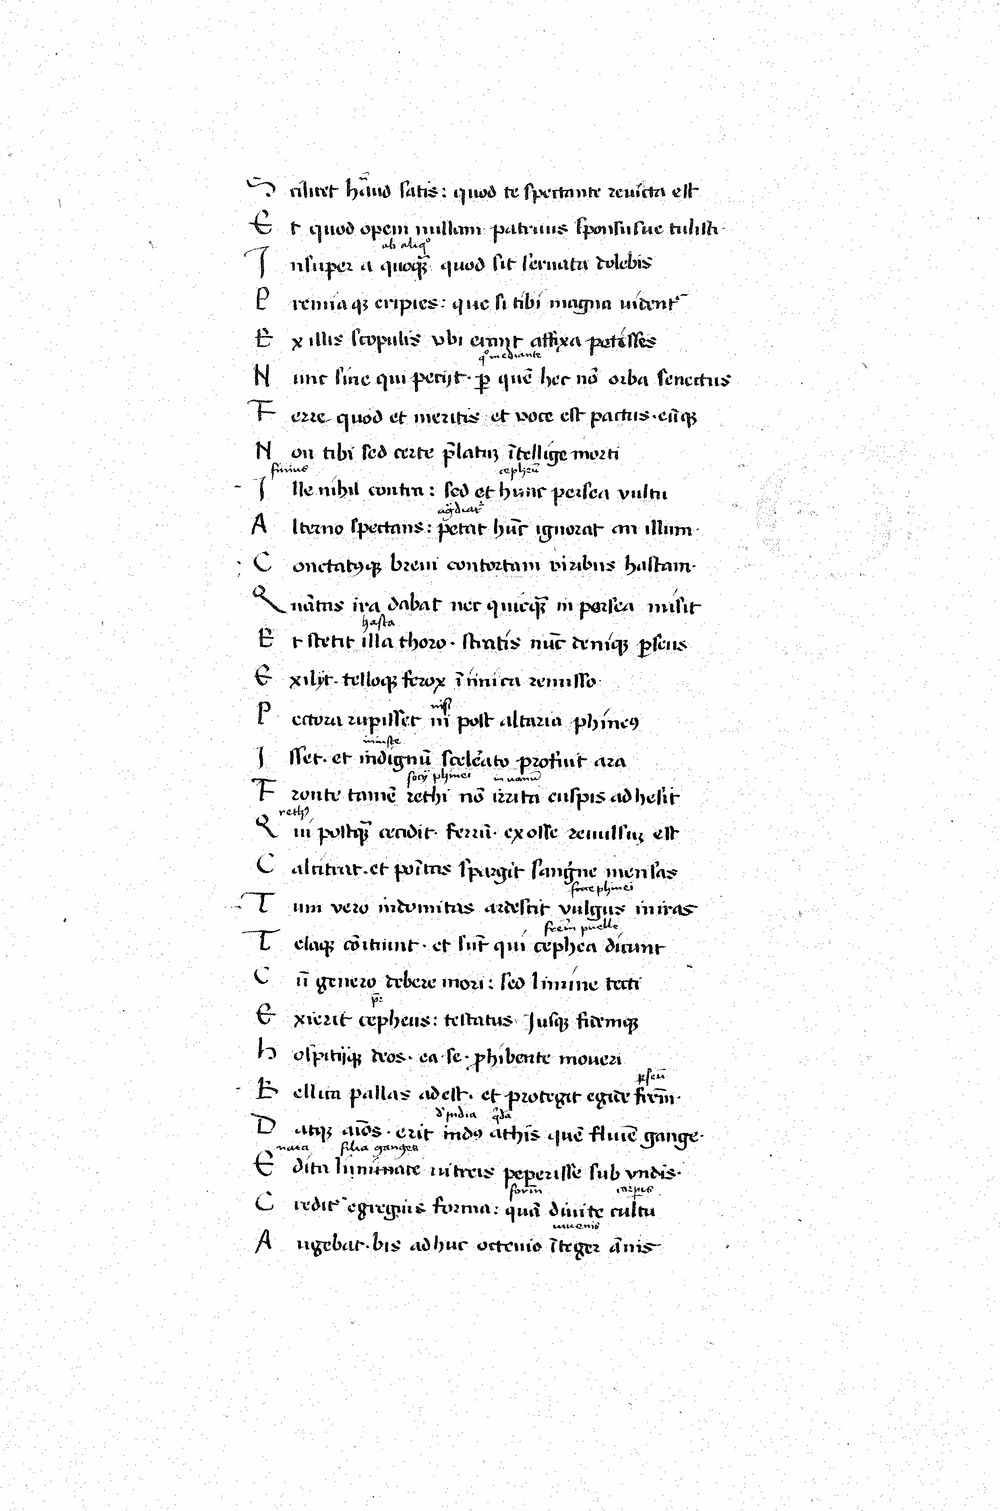 S cilicet hāud satis: quod te spectante reuicta est
E t quod opem nullam patruus sponsusue tulisti·
ab aliqº
I nsuper a quoqꝫ quod sit seruata dolebis
P remiaqꝫ eripies: que si tibi magna uident᷑
E x illis scopulis vbi erant affixa petisses
qº mediante
N unc sine qui petijt· ꝑ quē hec nō orba senectus
F erre quod et meritis et voce est pactus· eūqꝫ
N on tibi sed certe p̄latuꝫ ītellige morti
finius cepheū
I lle nihil contra: sed et hunc persea vultu
A lterno spectans: petat hūc ignorat an illum·
C onctatꝰqꝫ breui contortam viribus hastam·
Q uātas ira dabat nec quicqꝫ in persea misit
hasta
E t stetit illa thoro· stratis nūc deniqꝫ ꝑseus
E xilijt· telloqꝫ ferox īimica remisso·
nisi
P ectora rupisset ni post altaria phineꝰ
iniuste
I sset· et indignū scelerato profuit ara
socij phinei in uanū
F ronte tamē rethi nō irrita cuspis adhesit
rethꝰ
Q ui postqꝫ cecidit· ferrū· ex osse reuulsuꝫ est
C alcitrat· et poītas spargit sangne mensas
T um vero indomitas ardescit vulgus in iras
T elaqꝫ cōitiunt· et sūt qui cephea dicunt
C ū genero debere mori: sed limine tecti
E xierit cepheus: testatus Jusqꝫ fidemqꝫ
H ospitijqꝫ deos· ea· se· ꝓhibente moueri
ꝑseū
B ellica pallas adest· et protegit egide frēm·
d' india
D atqꝫ aīos· erit indꝰ athis quē fluuiē gange·
nata filia ganges
E dita limnate uitreis peperisse sub vndis·
C redit᷑ egregius forma: quā diuite cultu
iuuenis
A ugebat· bis adhuc octenis īteger ānis